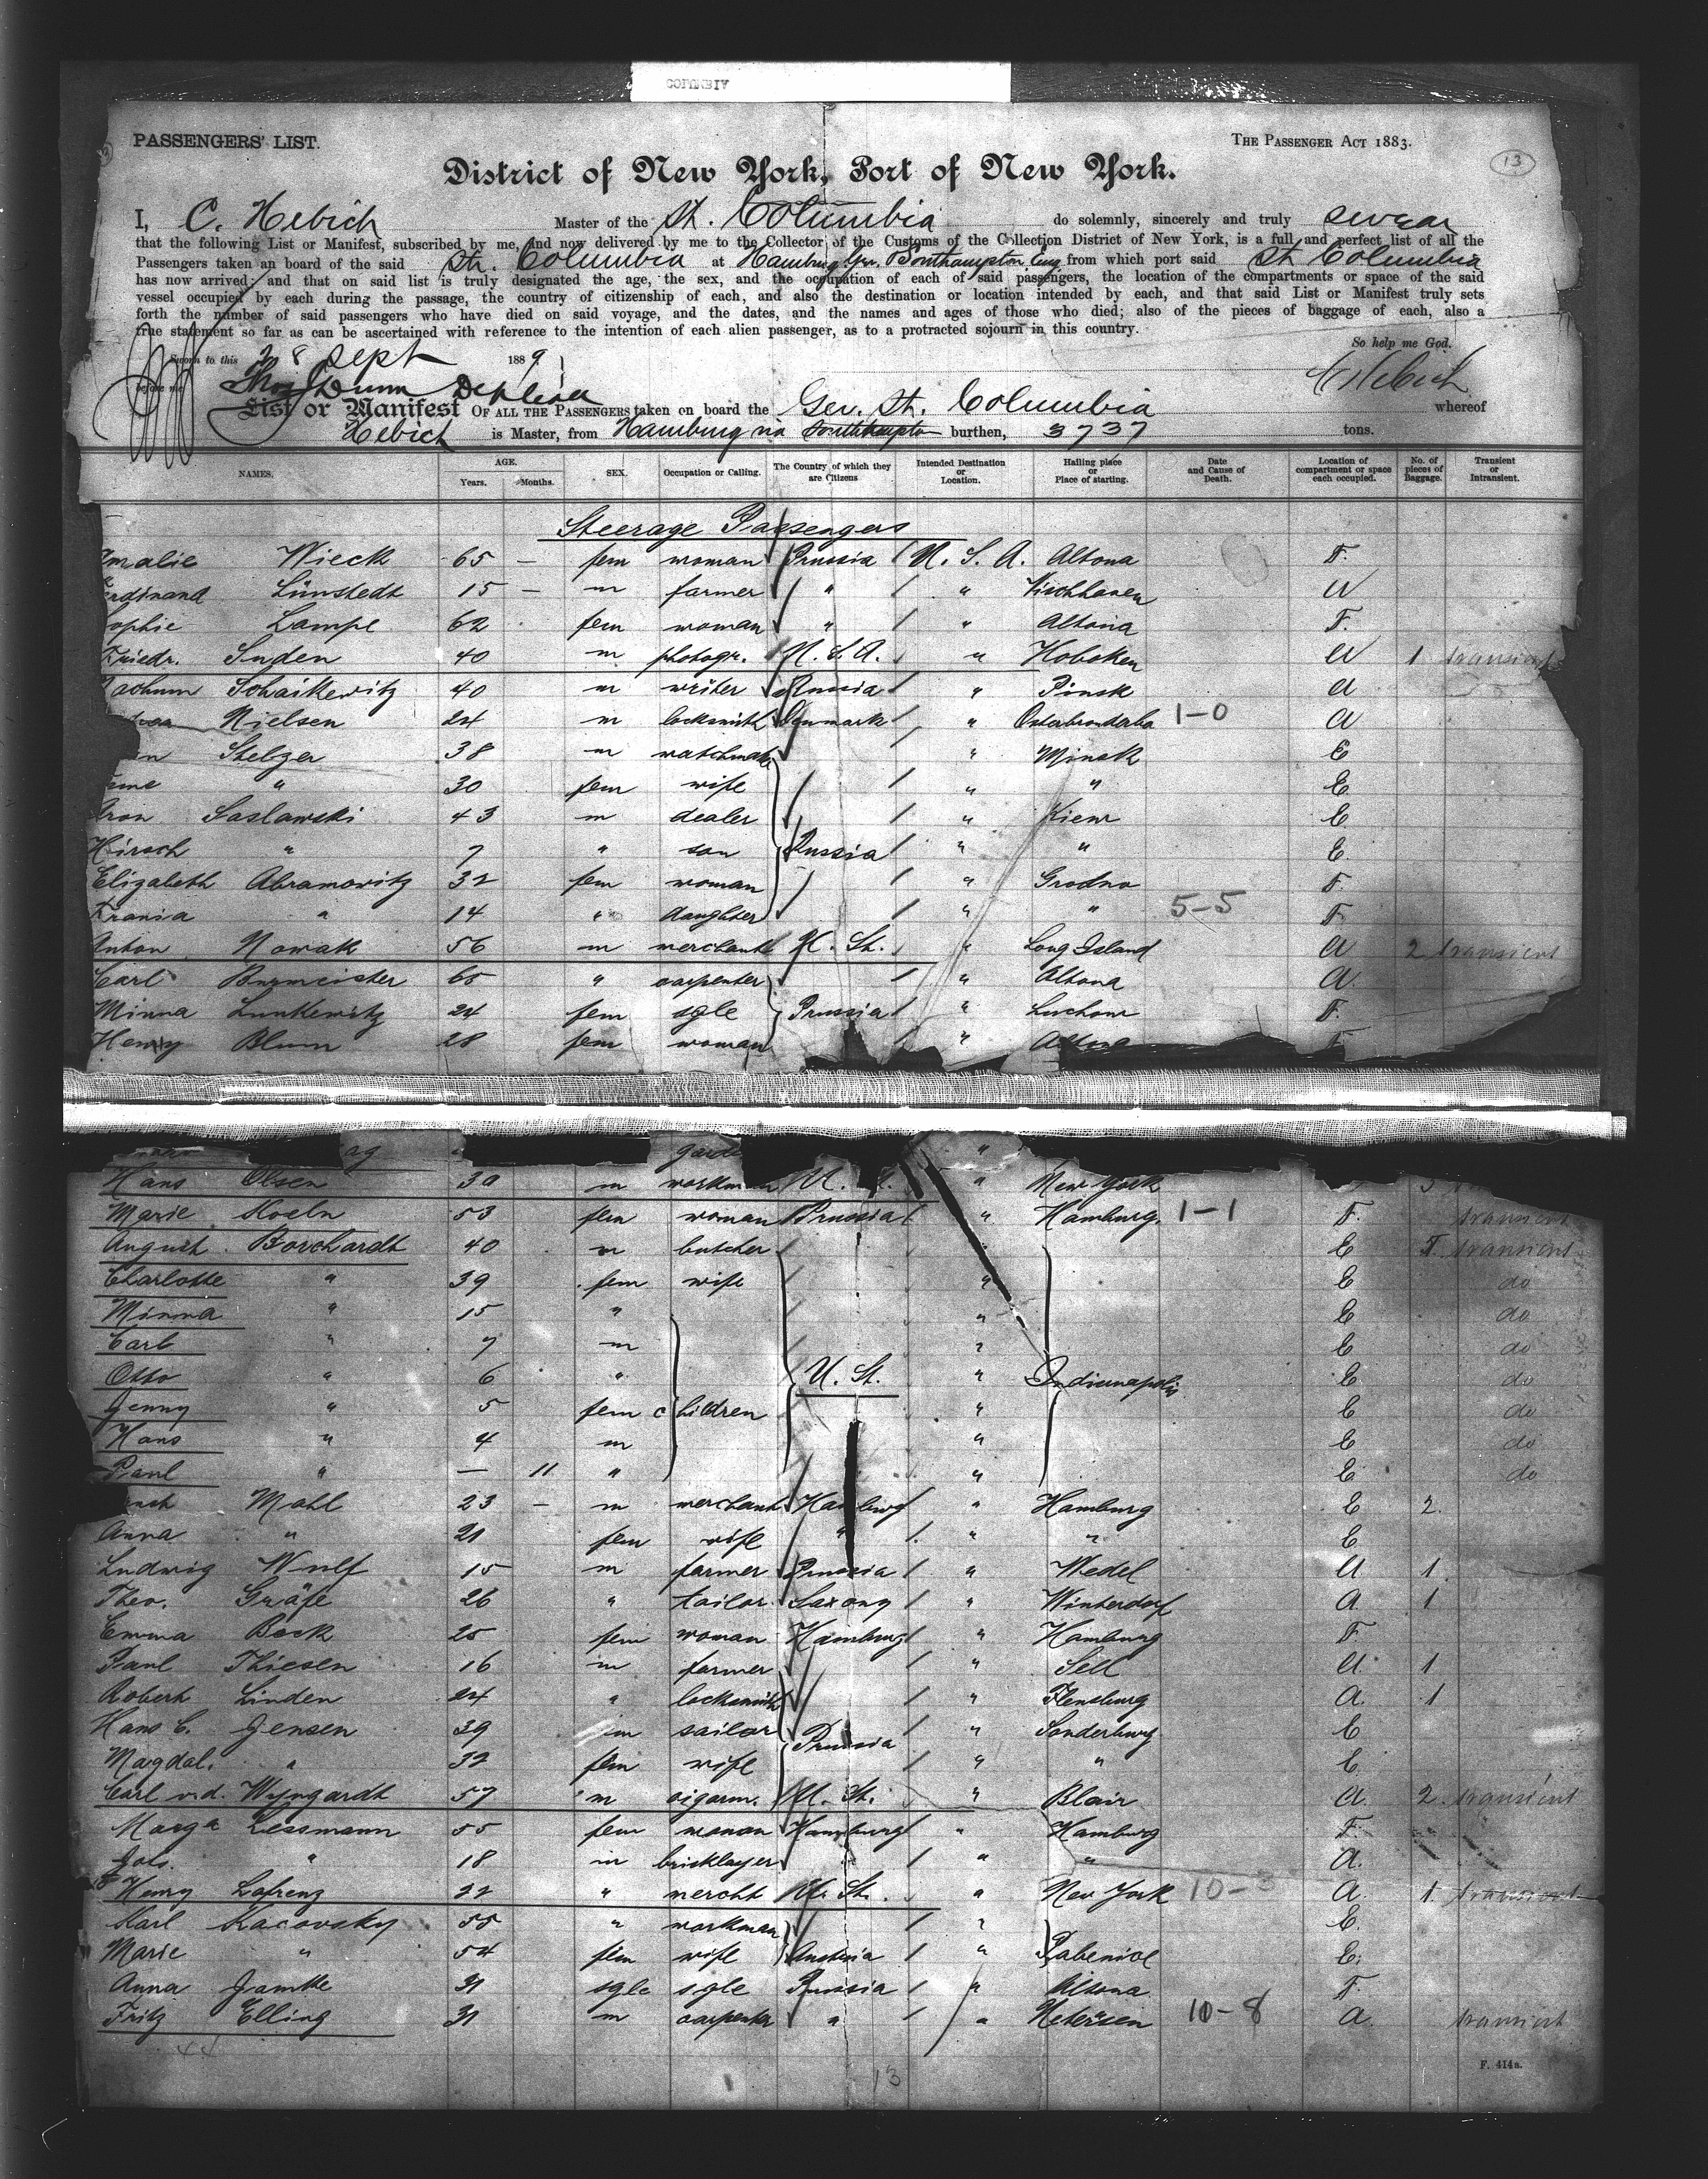 PASSENGERS' LIST.
THE PASSENGER ACT 1883.
13
District of New York, Port of New York.
I, C. Hebich Master of the St. Columbia do solemnly, sincerely and truly swear
that the following List or Manifest, subscribed by me, and now delivered by me to the Collector of the Customs of the Collection District of New York, is a full and perfect list of all the
Passengers taken an board of the said Str. Columbia at Hamburg Ger. Southampton Eng from which port said St Columbia
has now arrived; and that on said list is truly designated the age, the sex, and the occupation of each of said passengers, the location of the compartments or space of the said
vessel occupied by each during the passage, the country of citizenship of each, and also the destination or location intended by each, and that said List or Manifest truly sets
forth the number of said passengers who have died on said voyage, and the dates, and the names and ages of those who died; also of the pieces of baggage of each, also a
true statement so far as can be ascertained with reference to the intention of each alien passenger, as to a protracted sojourn in this country.
So help me God.
Sworn to this 28 Sept 1889
before me
C Hebich
List or Manifest OF ALL THE PASSENGERS taken on board the Ger. St. Columbia whereof
Hebich is Master, from Hamburg via Southampton burthen, 3737 tons.
NAMES. AGE. Years. Months. SEX. Occupation or Calling. The Country of which they are Citizens Intended Destination or Location. Hailing place or Place of starting. Date and Cause of Death. Location of compartment or space each occupied. No. of pieces of Baggage. Transient or Intransient.
Steerage Passengers
malie Wieck 65 — fem woman Prussia U. S. A. Altona F.
erdinand Lünstedt 15 — m farmer " " A
ophie Lampe 62 fem woman " " Altona F.
Friedr. Suden 40 m photogr. U. S. A. " Hoboken A 1 transient
achum Schaikewitz 40 m writer Russia " Pinsk A
Nielsen 24 m locksmith Denmark " 1-0 A
Stelzer 38 m watchmak " Minsk E
" 30 fem wife " " E
Aron Saslawski 43 m dealer " Kiew E
Hirsch " 7 " son Russia " " E.
Elizabeth Abramowitz 32 fem woman " Grodno F.
Frania " 14 " daughter " " 5-5 F
Anton Nowak 56 m merchant U. St. " Long Island A 2 transient
Carl Burmeister 65 " carpenter " Altona A.
Minna Lunkewitz 24 fem sgle Prussia " Luchow F.
Henny Blum 28 fem woman " Altona F
Hans Olsen 30 m workman U. " New York
Marie Koeln 53 fem woman Prussia " Hamburg. 1-1 F. transient
August Borchardt 40 m butcher E transient
Charlotte " 39 fem wife " E do
Minna " 15 " " E do
Carl " 7 m " E do
Otto " 6 " U. St. " Indianapolis E do
Jenny " 5 fem children " E do
Hans " 4 m " E do
Paul " — 11 " " E do
Mahl 23 — m merchant Hamburg " Hamburg E 2.
Anna " 21 fem wife " " " E
Ludwig Wulf 15 m farmer Prussia " Wedel A 1.
Theo. Gräfe 26 " tailor Saxony " Winterdorf A. 1
Emma Beck 25 fem woman Hamburg " Hamburg F
Paul Thiesen 16 m farmer " Sell A. 1
Robert Linden 24 " locksmith " Flensburg A. 1
Hans C. Jensen 39 m sailor Prussia " Sonderburg E
Magdal. " 32 fem wife " " E
Carl v.d. Wyngardt 57 m cigarm. U. St. " Blair A. 2. transient
Marga Lessmann 55 fem woman Hamburg " Hamburg F.
Joh. " 18 m bricklayer " " " A.
Henry Lafrenz 22 " mercht U. St. " New York 10-3 A. 1. transient
Karl Kacovsky 55 " workman " E.
Marie " 54 fem wife Austria " E.
Anna Jamke 31 sgle sgle Prussia " Altona F.
Fritz Elling 31 m carpenter " " Uetersen 10-8 A. transient
44
13
F. 414a.